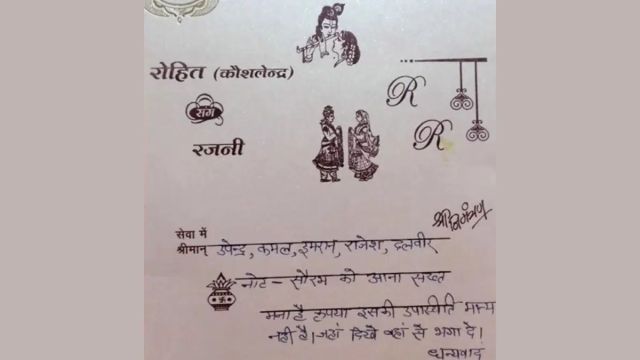 रोहित (कौशलेन्द्र)
संग
रजनी
R
R
श्री निमंत्रण
सेवा में
श्रीमान् उपेन्द्र, कमल, इमरान, राजेश, दलवीर
नोट - सौरभ को आना सख्त
मना है कृपया इसकी उपस्थिति मान्य
नहीं है। जहां दिखे वहां से भगा दे।
धन्यवाद